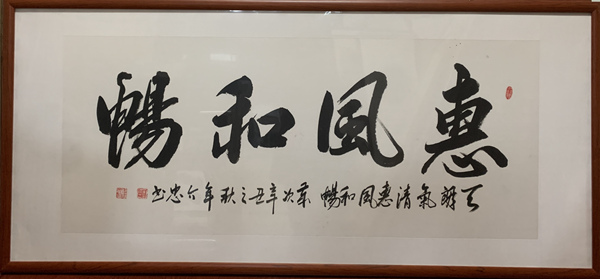 惠風和暢
天朗氣清惠風和暢 歲次辛丑之秋年忠书